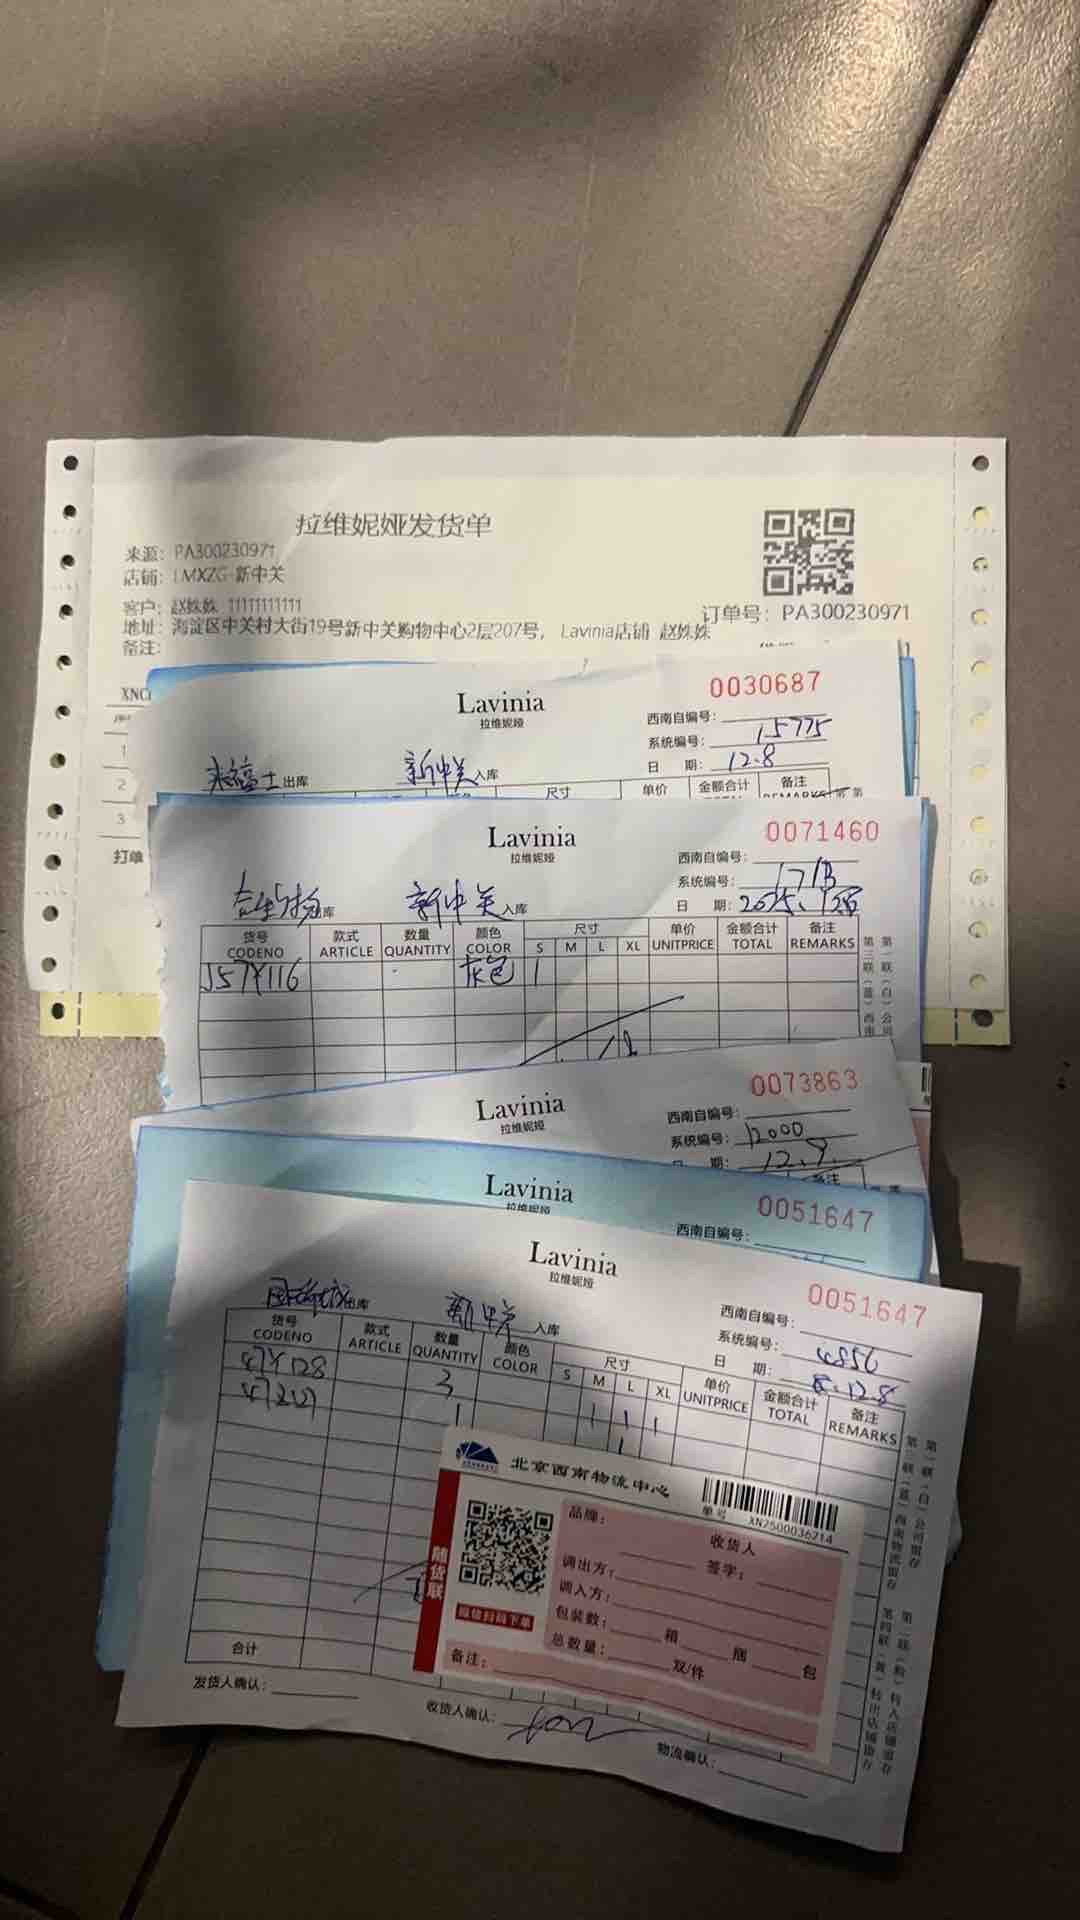 拉维妮娅发货单
来源: PA300230971
店铺: LMXZG-新中关
客户: 赵姝姝 11111111111
订单号: PA300230971
地址: 海淀区中关村大街19号新中关购物中心2层207号, Lavinia店铺 赵姝姝
备注:
1
2
3
打单
0030687
Lavinia
拉维妮娅
西南自编号:
系统编号: 15775
日 期: 12.8
出库 新中关入库
尺寸 单价 金额合计 备注
0071460
Lavinia
拉维妮娅
西南自编号:
系统编号:
日 期:
出库 新中关入库
货号 款式 数量 颜色 尺寸 单价 金额合计 备注
CODENO ARTICLE QUANTITY COLOR S M L XL UNITPRICE TOTAL REMARKS
J57Y116 灰色 1
0073863
Lavinia
拉维妮娅
西南自编号:
系统编号: 12000
日 期: 12.9.
备注
Lavinia
拉维妮娅
0051647
西南自编号:
0051647
Lavinia
拉维妮娅
西南自编号:
系统编号: 4856
日 期: 12.8
出库 新中关入库
货号 款式 数量 颜色 尺寸 单价 金额合计 备注
CODENO ARTICLE QUANTITY COLOR S M L XL UNITPRICE TOTAL REMARKS
47Y128 3 1 1 1
1 1
北京西南物流中心
单号 XN7500036214
随货联
微信扫码下单
品牌:
收货人
签字:
调出方:
调入方:
包装数: 箱 捆 包
总数量: 双/件
备注:
合计
发货人确认:
收货人确认:
物流确认: